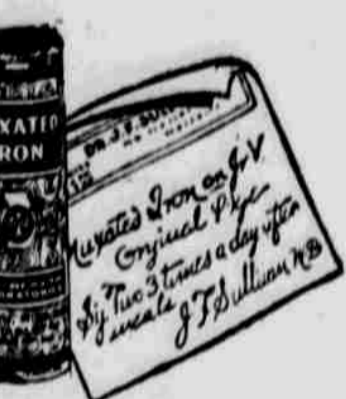 XATED
RON
DR. J. F. SULL
Nuxated Iron on Gr V
Original Pkge
Sig Two 3 times a day after
meals
J F Sullivan MD